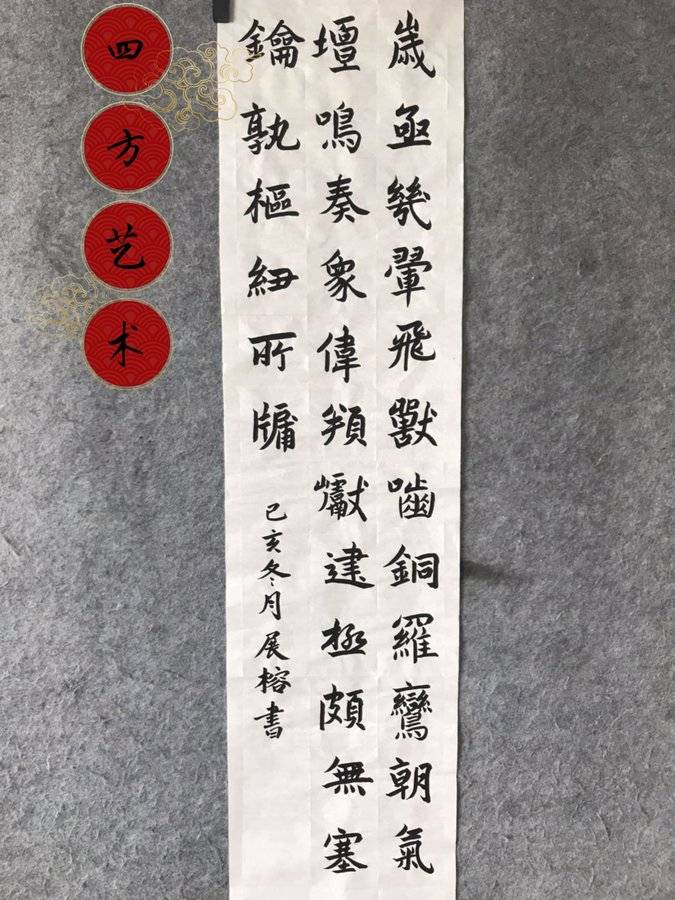 四方艺术
歲亟幾翬飛獸嚙銅羅鸞朝氣
壇鳴奏衆偉頖巘建極頗無塞
鑰孰樞紐所牖
己亥冬月展榕書